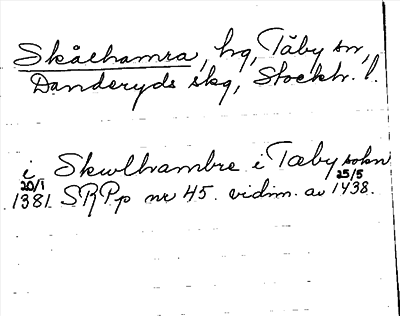 Skålhamra, hg, Täby sn,
Danderyds skg, Stockh. l.
i Skulhambre i Tæby sokn
20/1 1381. SRPp nr 45. vidim. av 25/5 1438.